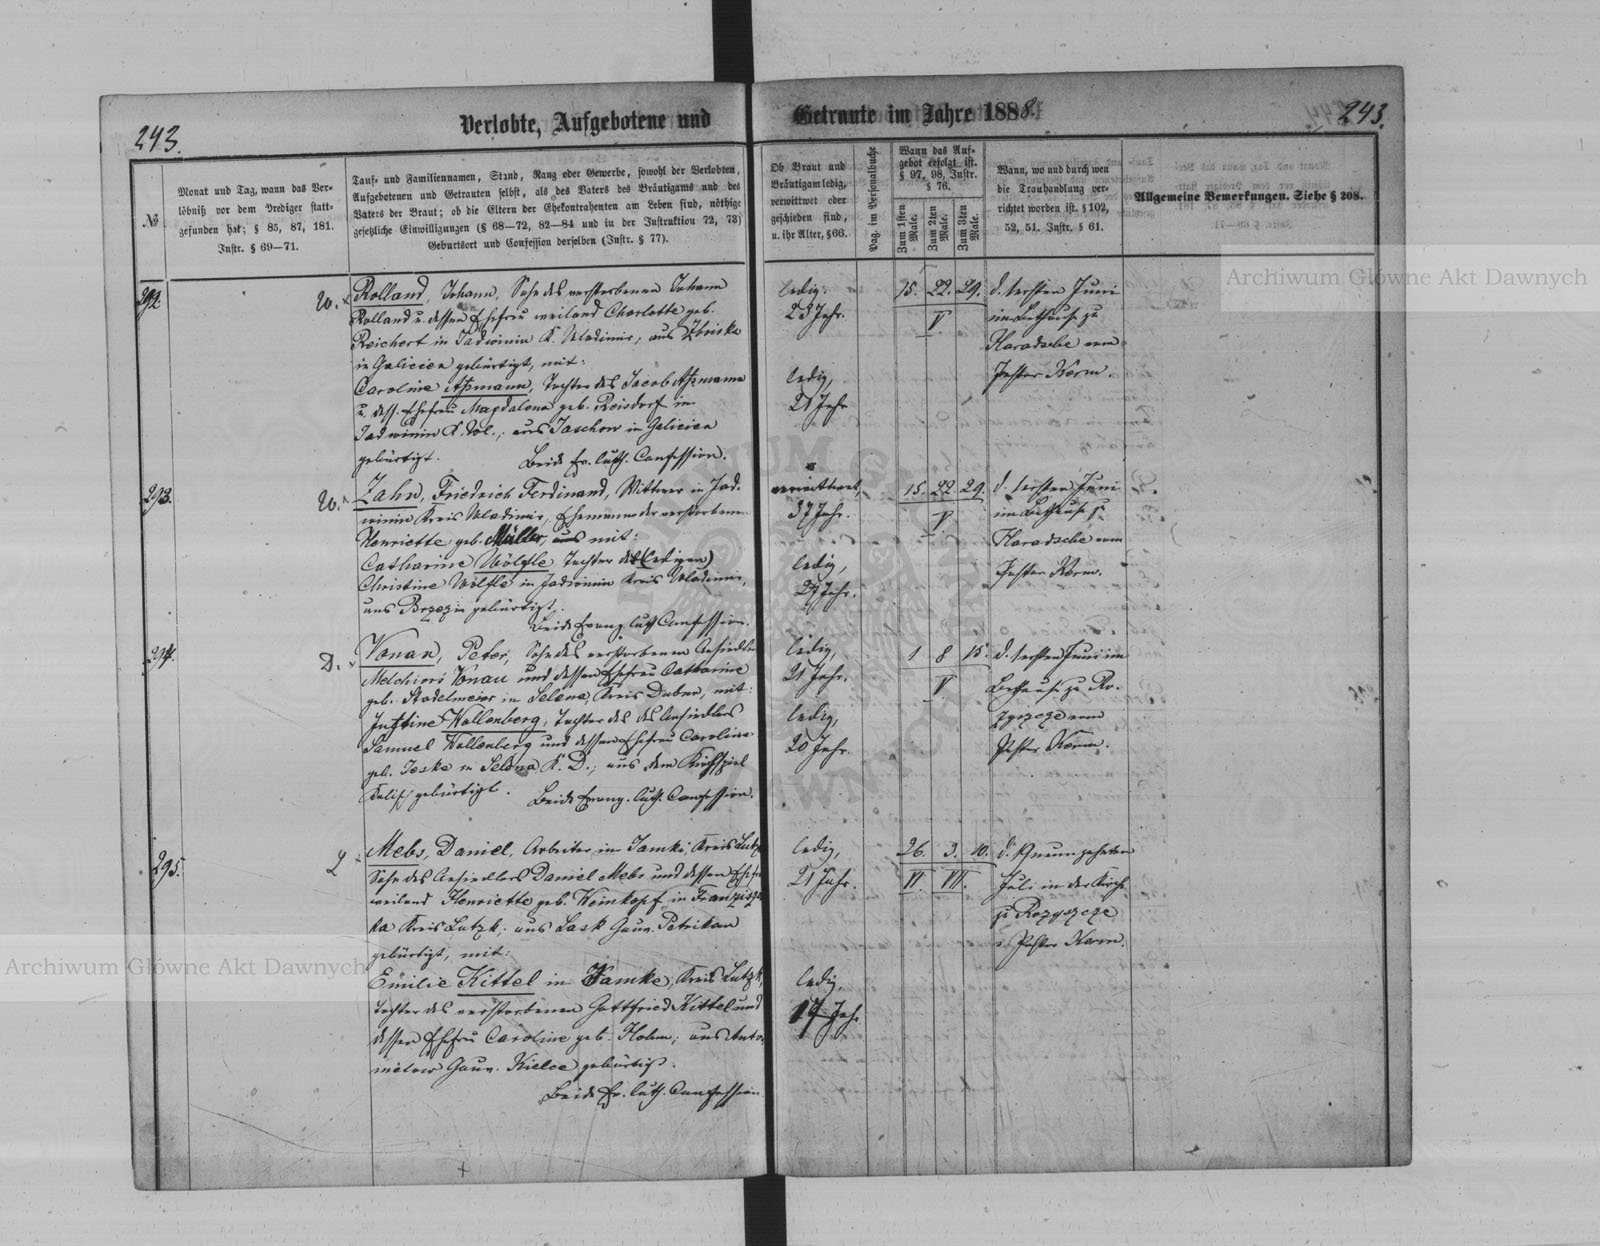 243.
Verlobte, Aufgebotene und
Getraute im Jahre 1888.
243.
№
Monat und Tag, wann das Ver-
löbniß vor dem Prediger statt-
gefunden hat; § 85, 87, 181.
Instr. § 69—71.
Tauf- und Familiennamen, Stand, Rang oder Gewerbe, sowohl der Verlobten,
Aufgebotenen und Getrauten selbst, als des Vaters des Bräutigams und des
Vaters der Braut; ob die Eltern der Ehekontrahenten am Leben sind, nöthige
gesetzliche Einwilligungen (§ 68—72, 82—84 und in der Instruktion 72, 73)
Geburtsort und Confession derselben (Instr. § 77).
Ob Braut und
Bräutigam ledig,
verwittwet oder
geschieden sind,
u. ihr Alter, § 66.
Pag. im Personalbuche
Wann das Auf-
gebot erfolgt ist.
§ 97, 98, Instr.
§ 76.
Zum 1sten Male.
Zum 2ten Male.
Zum 3ten Male.
Wann, wo und durch wen
die Trauhandlung ver-
richtet worden ist. § 102,
52, 51. Instr. § 61.
Allgemeine Bemerkungen. Siehe § 208.
292
W.
Rolland, Johann, Sohn des verstorbenen Johann
Rolland u. dessen Ehefrau weiland Charlotte geb.
Reichert in Jadwinin K. Wladimir, aus
in Galicien gebürtigt, mit:
Caroline Aßmann, Tochter des Jacob Aßmann
u. dess. Ehefrau Magdalena geb. Reisdorf in
Jadwinin K. Wol.; aus Jaschow in Galicien
gebürtigt. Beide Ev. luth. Confession.
ledig.
23 Jahr.
ledig,
21 Jahr
15. 22. 29.
V.
d. ersten Juni
im Bethause zu
Karadsche vom
Pastor Kerm.
293.
W.
Zahn, Friedrich Ferdinand, Wittwer in Jad-
winin Kreis Wladimir, Ehemann der verstorbenen
Henriette geb. Müller, aus mit:
Catharine Wölfle, Tochter der (ledigen)
Christine Wölfle in Jadwinin Kreis Wladimir,
aus Brzezin gebürtigt.
Beide Evang. luth Confession.
verwittwet,
37 Jahr.
ledig,
27 Jahr.
15. 22. 29.
V
d. ersten Juni
im Bethause zu
Karadsche vom
Pastor Kerm.
294.
D.
Vonau, Peter, Sohn des verstorbenen Ansiedler
Melchiori Vonau und dessen Ehefrau Catharine
geb. Stadelmeier in Selena, Kreis Dubno, mit:
Justine Wallenberg, Tochter des des Ansiedlers
Samuel Wallenberg und dessen Ehefrau Caroline
geb. Jeske in Selena K. D.; aus dem Kirchspiel
Kalisch gebürtigt. Beide Evang. luth. Confession.
ledig,
21 Jahr.
ledig,
20 Jahr.
1 8 15.
V
d. ersten Juni im
Bethause zu Ro-
zyszcze vom
Pastor Kerm.
295.
L
Mebs, Daniel, Arbeiter in Jamki Kreis Lutzk
Sohn des Ansiedlers Daniel Mebs und dessen Ehefr.
weiland Henriette geb. Weinkopf in Franzisz-
ka Kreis Lutzk; aus Lask Gouv. Petrikau
gebürtigt, mit:
Emilie Kittel in Jamke, Kreis Lutzk,
Tochter des verstorbenen Gottfried Kittel und
dessen Ehefrau Caroline geb. Hohm; aus Anto-
nielow Gouv. Kielce gebürtigt.
Beide Ev. luth. Confession
ledig,
21 Jahr.
ledig,
19 Jahr
26. 3. 10.
VI. VII.
d. Neunzehnten
Juli in der Kirche
zu Rozyszcze
v. Pastor Kerm.
Archiwum Główne Akt Dawnych
Archiwum Główne Akt Dawnych